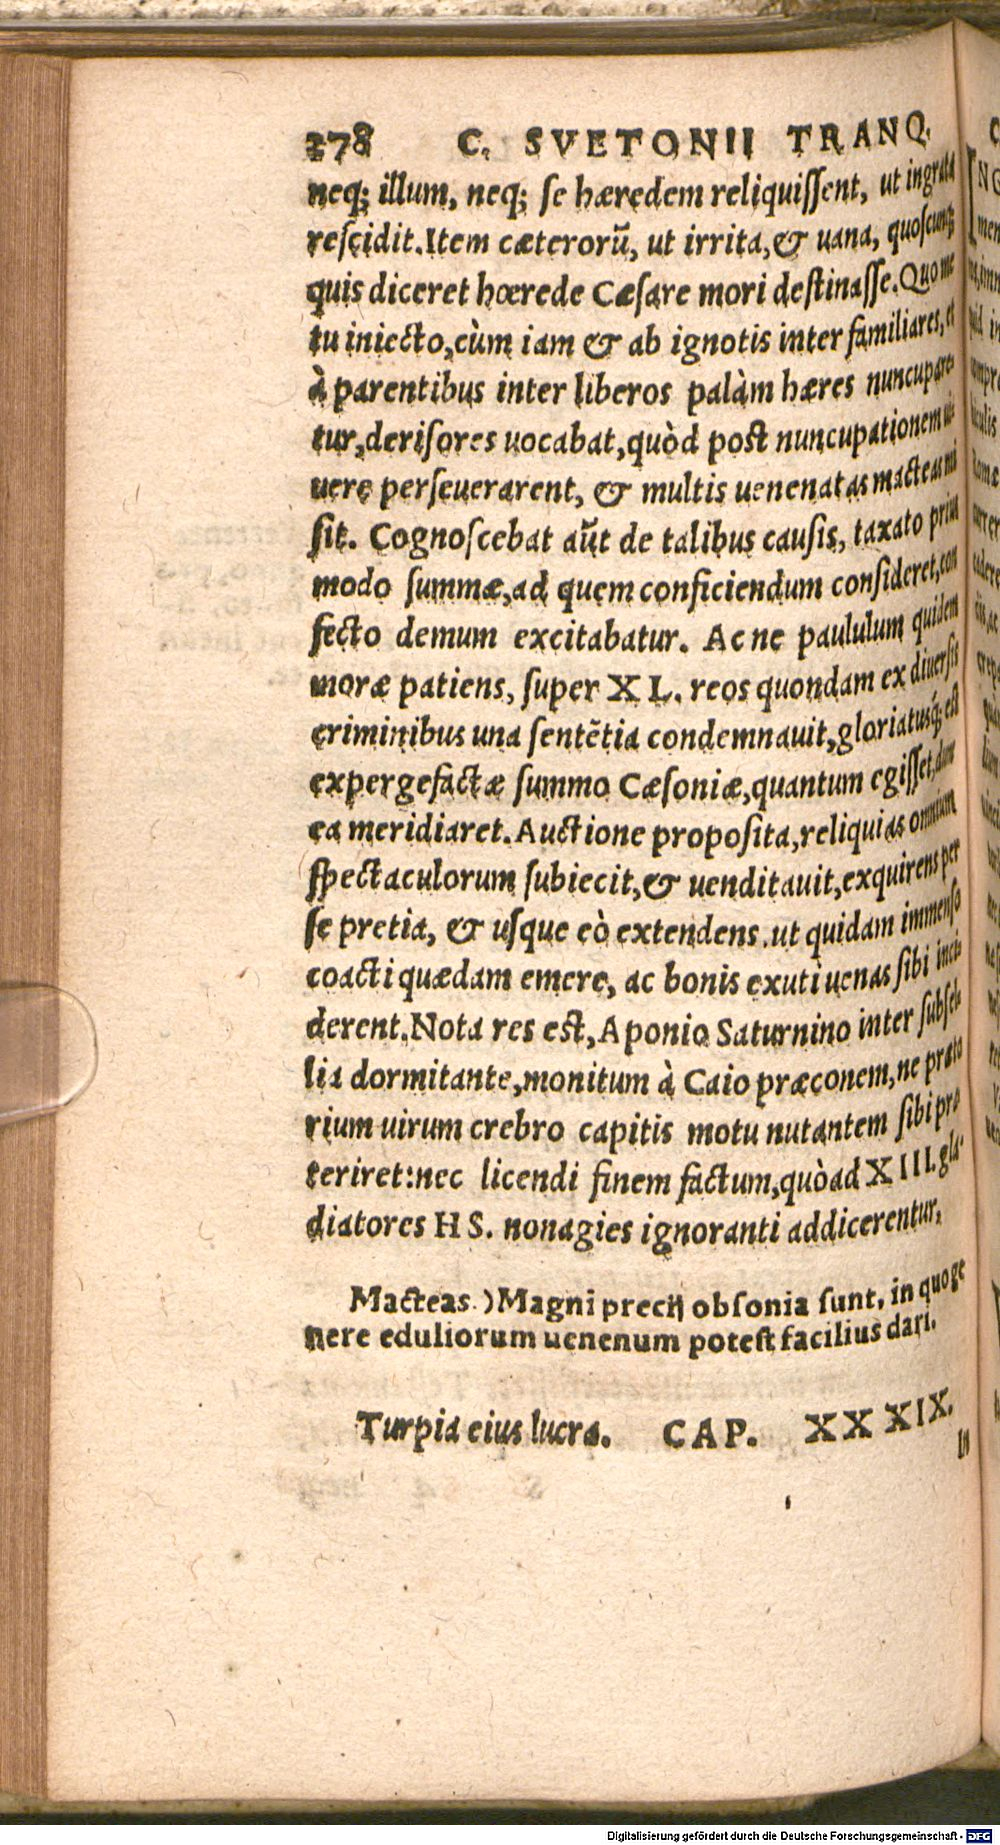 278 C. SVETONII TRANQ.
neq; illum, neq; se hæredem reliquissent, ut ingrata
rescidit. Item cæterorũ, ut irrita, & uana, quoscunq;
quis diceret hœrede Cæsare mori destinasse. Quo me
tu iniecto, cùm iam & ab ignotis inter familiares, et
à parentibus inter liberos palàm hæres nuncupare
tur, derisores uocabat, quòd post nuncupationem ui
uere perseuerarent, & multis uenenatas macteas mi
sit. Cognoscebat aũt de talibus causis, taxato prius
modo summæ, ad quem conficiendum consideret, con
fecto demum excitabatur. Ac ne paululum quidem
moræ patiens, super XL. reos quondam ex diuersis
criminibus una sentẽtia condemnauit, gloriatusq́; est
expergefactæ summo Cæsoniæ, quantum egisset, dum
ea meridiaret. Auctione proposita, reliquias omnium
spectaculorum subiecit, & uenditauit, exquirens per
se pretia, & usque eò extendens, ut quidam immenso
coacti quædam emere, ac bonis exuti uenas sibi inci
derent. Nota res est, Aponio Saturnino inter subsel
lia dormitante, monitum à Caio præconem, ne præto
rium uirum crebro capitis motu nutantem sibi præ
teriret: nec licendi finem factum, quòad XIII. gla
diatores HS. nonagies ignoranti addicerentur.
Macteas.) Magni precij obsonia sunt, in quo ge
nere eduliorum uenenum potest facilius dari.
Turpia eius lucra. CAP. XXXIX.
In
Digitalisierung gefördert durch die Deutsche Forschungsgemeinschaft - DFG